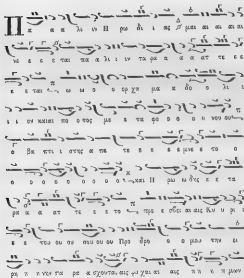 Π α α λιν Η ρω δι ι ας μαι αι αι αι αι
νε ε ε ται πα α λι ιν τα ρα α α ατ τε ε ε
ε ε ται ω ω ο ο ορ χη μα α δο ο λι ι
ι ι ον και πο ο τος με ε τα δο ο ο ου νου ου
ο Βα πτι ι στης α πε τε ε ε ε ε μνε το ο
ο ο ο ο ο ο ο και Η ρω ω δης ε ε τα
ρα α α ατ τε ε ε το ο πρε ε σβει αι αις Κυ υ ρι ι
ε ε του ου σου ου ου ου Προ δρο ο μου την ει
ρη η η νην πα ρα α σχου ται αις ψυ χαι αι αις η η η μων